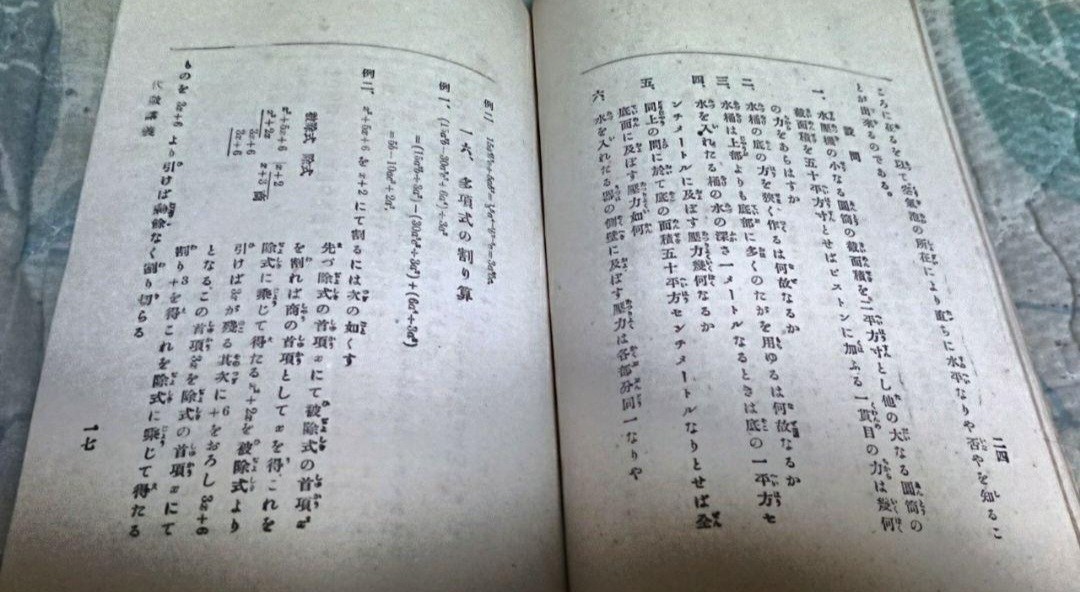 二四
ころに在るを以て空氣池の所在により直ちに水平なりや否やを知るこ
とが出來るのである。
設問
一、水壓機の小なる圓筒の截面積を二平方寸とし他の大なる圓筒の
截面積を五十平方寸とせばピストンに加ふる一貫目の力は幾何
の力をあらはすか
二、水桶の底の方を狹く作るは何故なるか
三、水桶は上部よりも底部に多くのたがを用ゆるは何故なるか
四、水を入れたる桶の水の深さ一メートルなるときは底の一平方セ
ンチメートルに及ぼす壓力幾何なるか
五、同上の問に於て底の面積五十平方センチメートルなりとせば全
底面に及ぼす壓力如何
六、水を入れたる器の側壁に及ぼす壓力は各部分同一なりや
例二、
一六、多項式の割り算
例一、(15a³b−30a²b²+6a²)÷3a²
例二、x²+5x+6 を x+2 にて割るには次の如くす
被除式 除式
x²+5x+6 x+2
x²+2x x+3 商
3x+6
3x+6
先づ除式の首項 x にて被除式の首項 x²
を割れば商の首項として x を得、これを
除式に乘じて得たる x²+2x を被除式より
引けば 3x が殘る其次に +6 をおろし 3x+6
となる、この首項 3x を除式の首項 x にて
割り +3 を得これを除式に乘じて得たる
ものを 3x+6 より引けば剩餘なく割り切らる
代數講義
一七